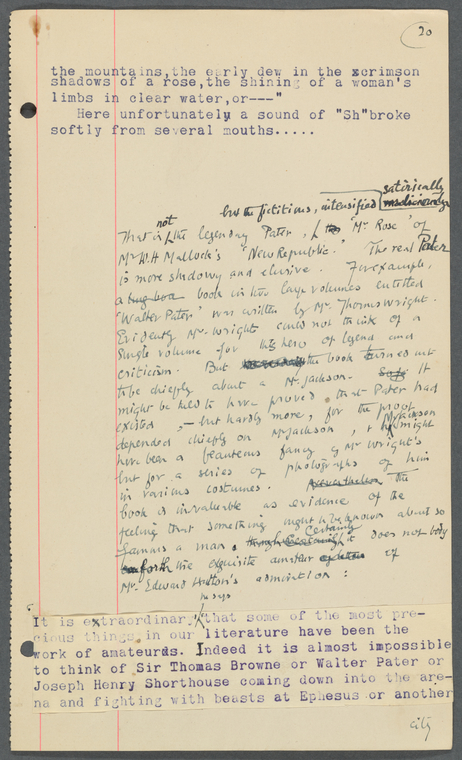 20
the mountains,the early dew in the xcrimson
shadows of a rose,the shining of a woman's
limbs in clear water,or---"
Here unfortunately a sound of "Sh"broke
softly from several mouths.....
satirically
but the fictitious, intensified
not
That is the legendary Pater, "Mr Rose" of
Mr W.H Mallock's "New Republic." The real Pater
is more shadowy and elusive. For example,
a book in two large volumes entitled
"Walter Pater" was written by Mr. Thomas Wright.
Evidently Mr. Wright could not think of a
single volume for his hero of legend and
criticism. But the book turns out
to be chiefly about a Mr. Jackson. It
might be held to have proved that Pater had
existed, – but hardly more, for the proof
depended chiefly on Mr Jackson, & Mr Jackson might
have been a beauteous fancy of Mr Wright's
but for a series of photographs of him
in various costumes. The
book is invaluable as evidence of the
feeling that something ought to be known about so
famous a man. Certainly
it does not body
forth the exquisite amateur of
Mr. Edward Hutton's admiration:
he says
"It is extraordinary, that some of the most pre-
cious things in our literature have been the
work of amateurds. Indeed it is almost impossible
to think of Sir Thomas Browne or Walter Pater or
Joseph Henry Shorthouse coming down into the are-
na and fighting with beasts at Ephesus or another
city